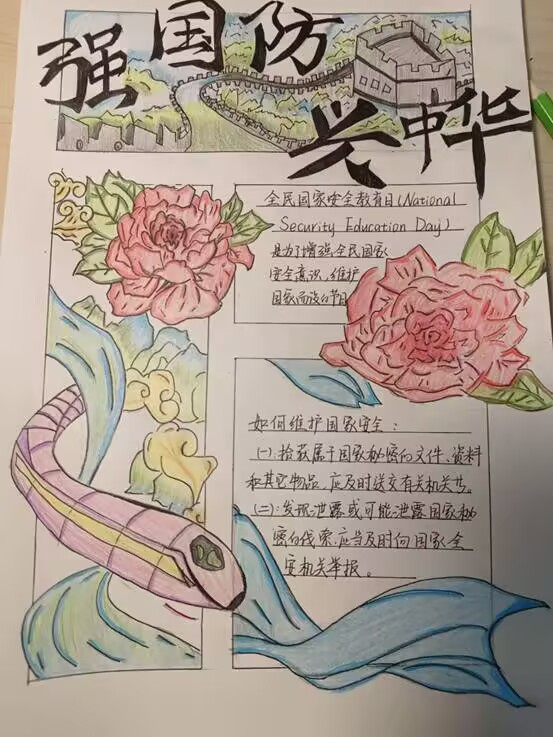 强国防
兴中华
全民国家安全教育日(National
Security Education Day)
是为了增强全民国家
安全意识,维护
国家而设的节日
如何维护国家安全:
(一):拾获属于国家秘密的文件、资料
和其它物品,应及时送交有关机关
(二):发现泄露或可能泄露国家秘
密的线索,应当及时向国家全
安机关举报。